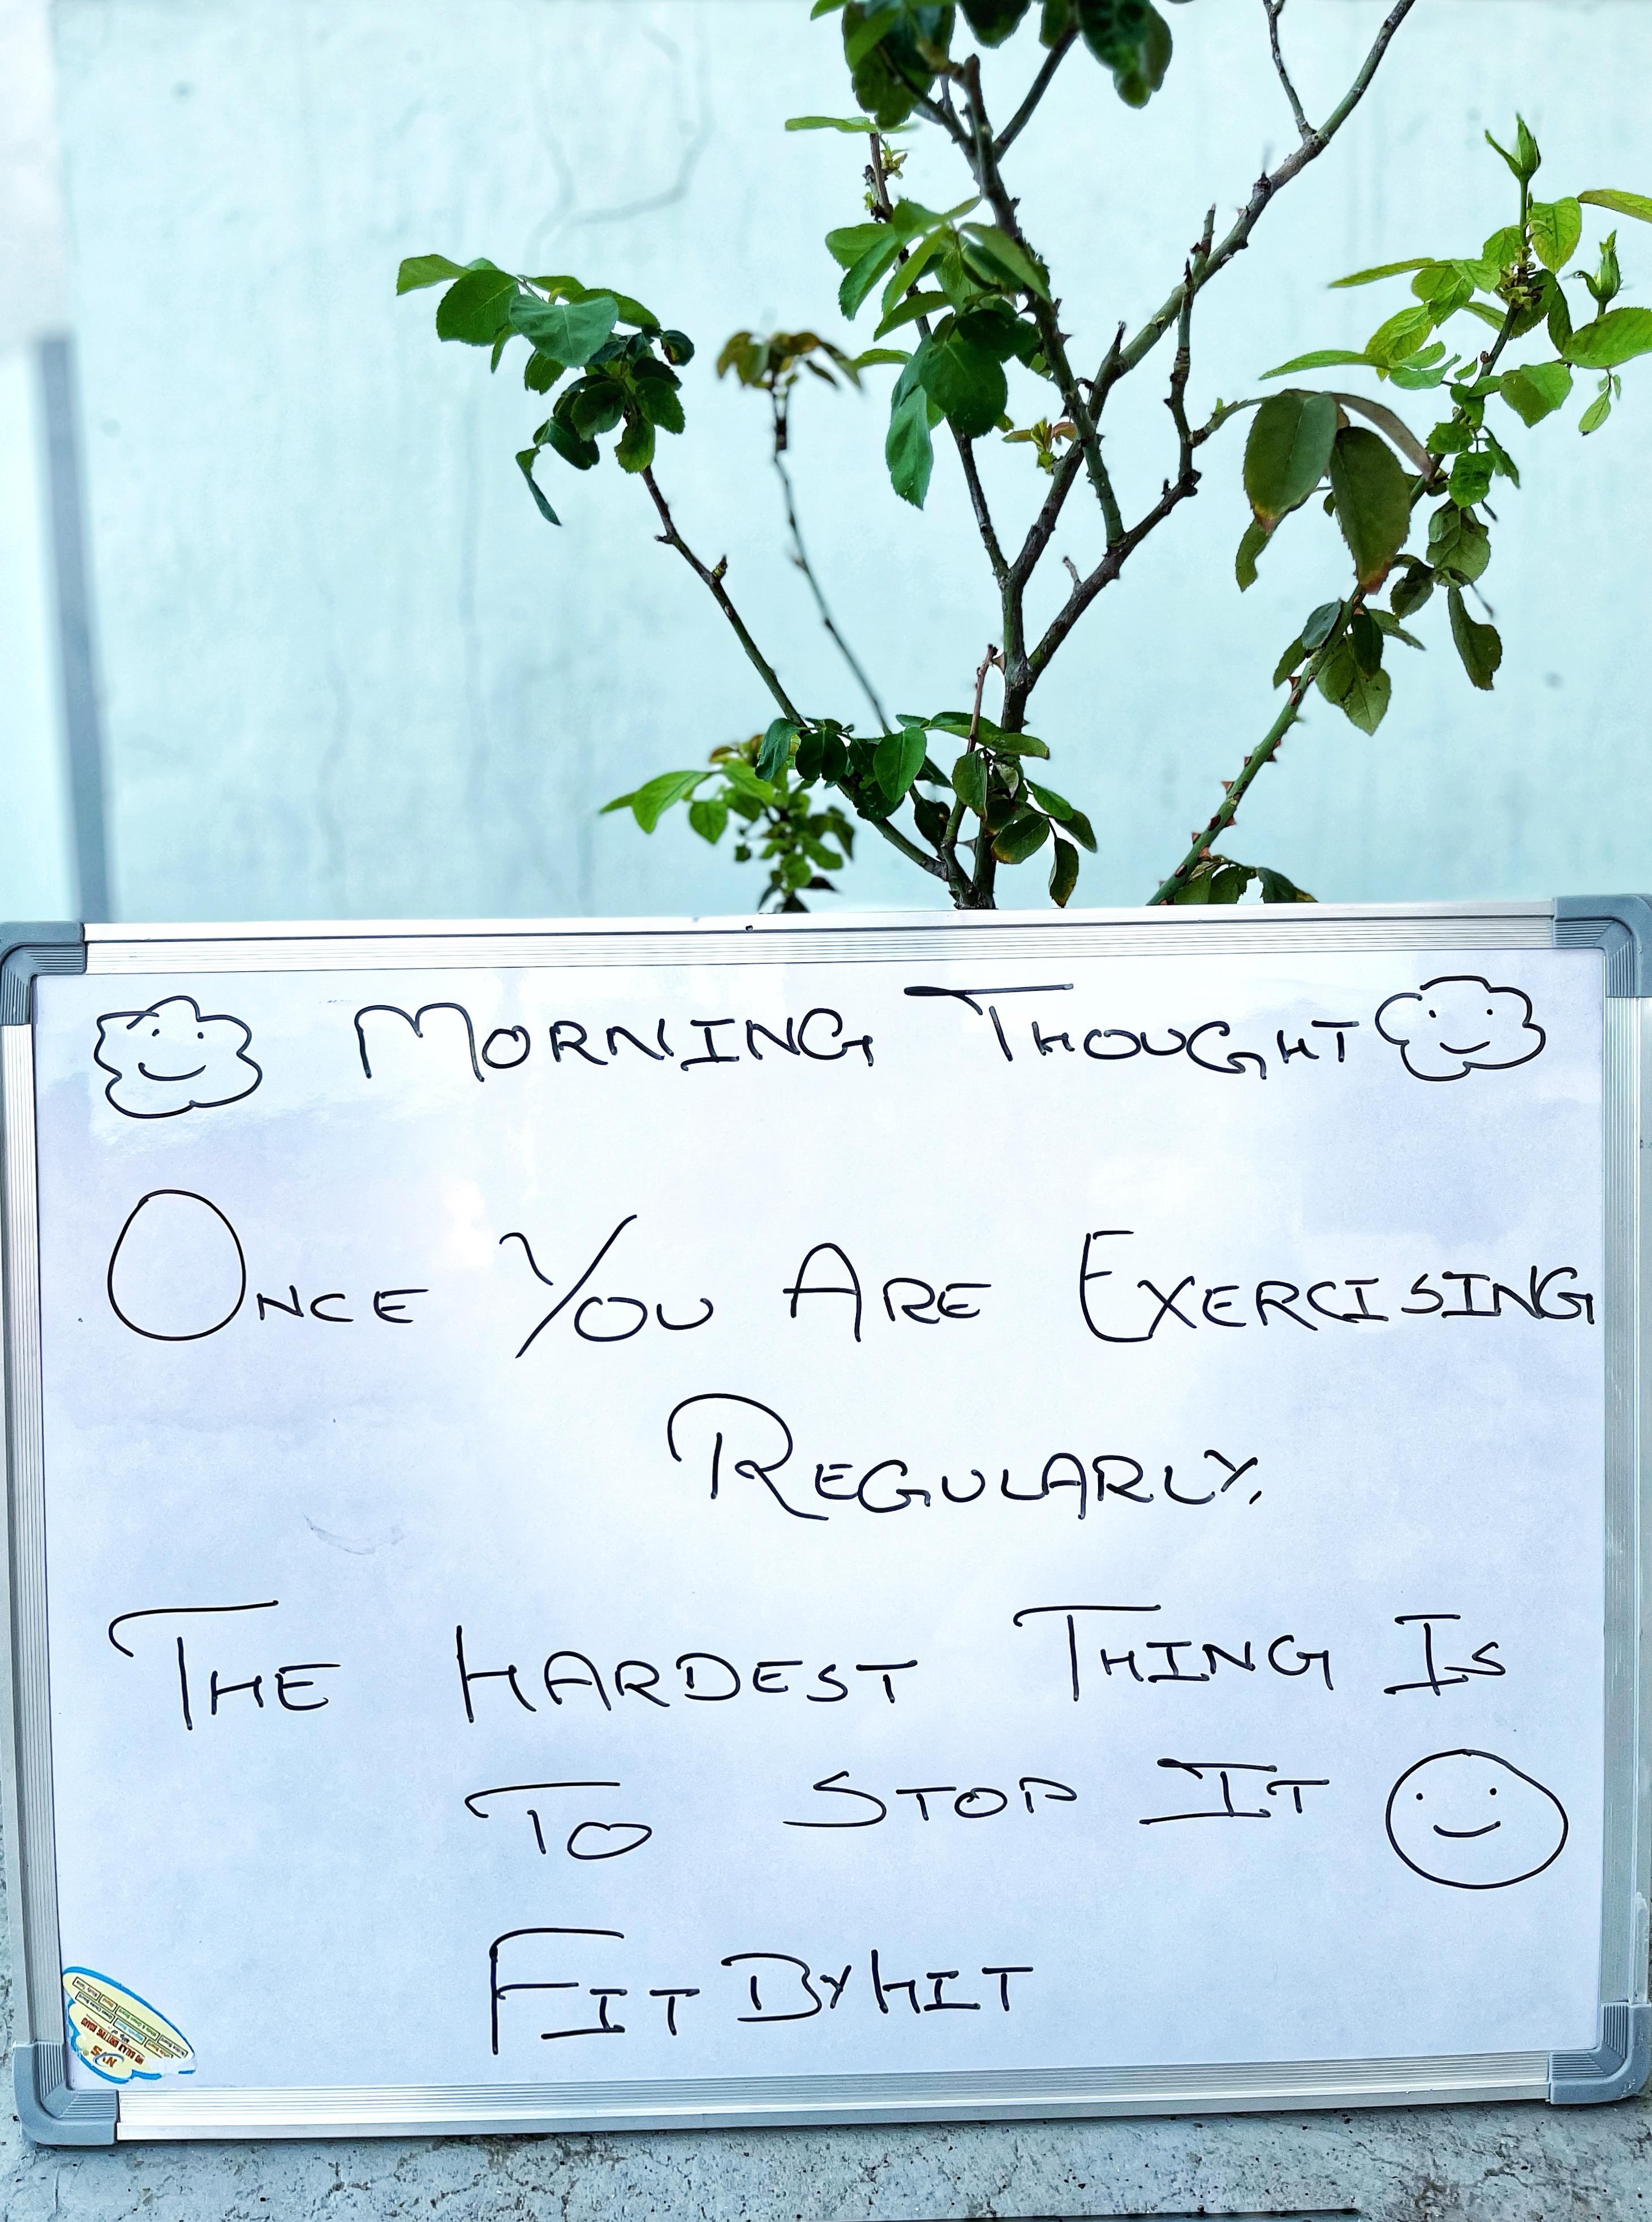 MORNING THOUGHT
ONCE YOU ARE EXERCISING
REGULARLY,
THE HARDEST THING IS
TO STOP IT
FIT BY HIT